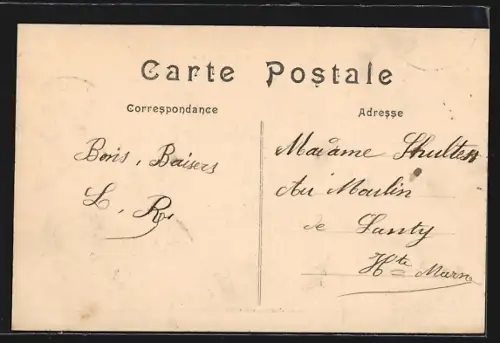 Carte Postale
Correspondance
Adresse
Bons, Baisers
L, R.
Madame Shultess
Au Moulin
de Lanty
Hte Marne